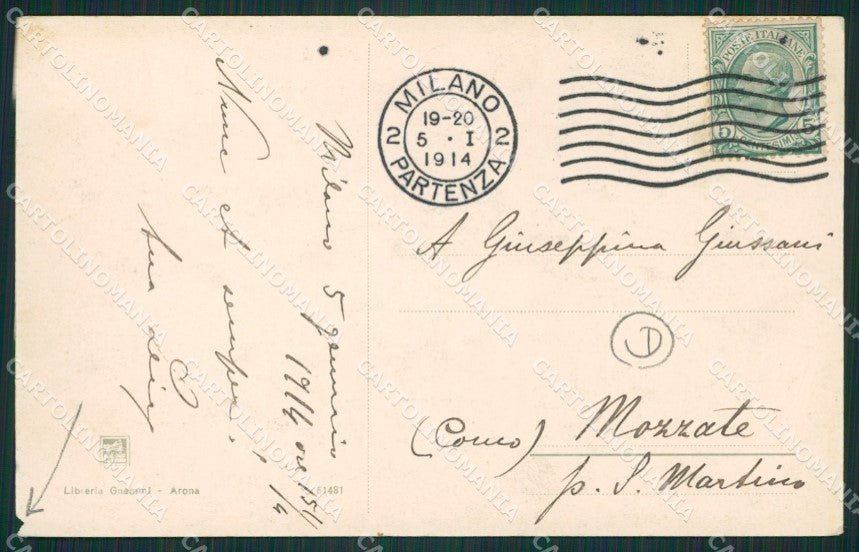 Milano 5 gennaio
1914 ore 15 1/4
Nunc et semper!
tua
MILANO
19-20
5 · I
1914
2 2
PARTENZA
POSTE ITALIANE
5 5
A Giuseppina Giussani
D
(Como) Mozzate
p. S. Martino
Libreria - Arona
61481
CARTOLINOMANIA